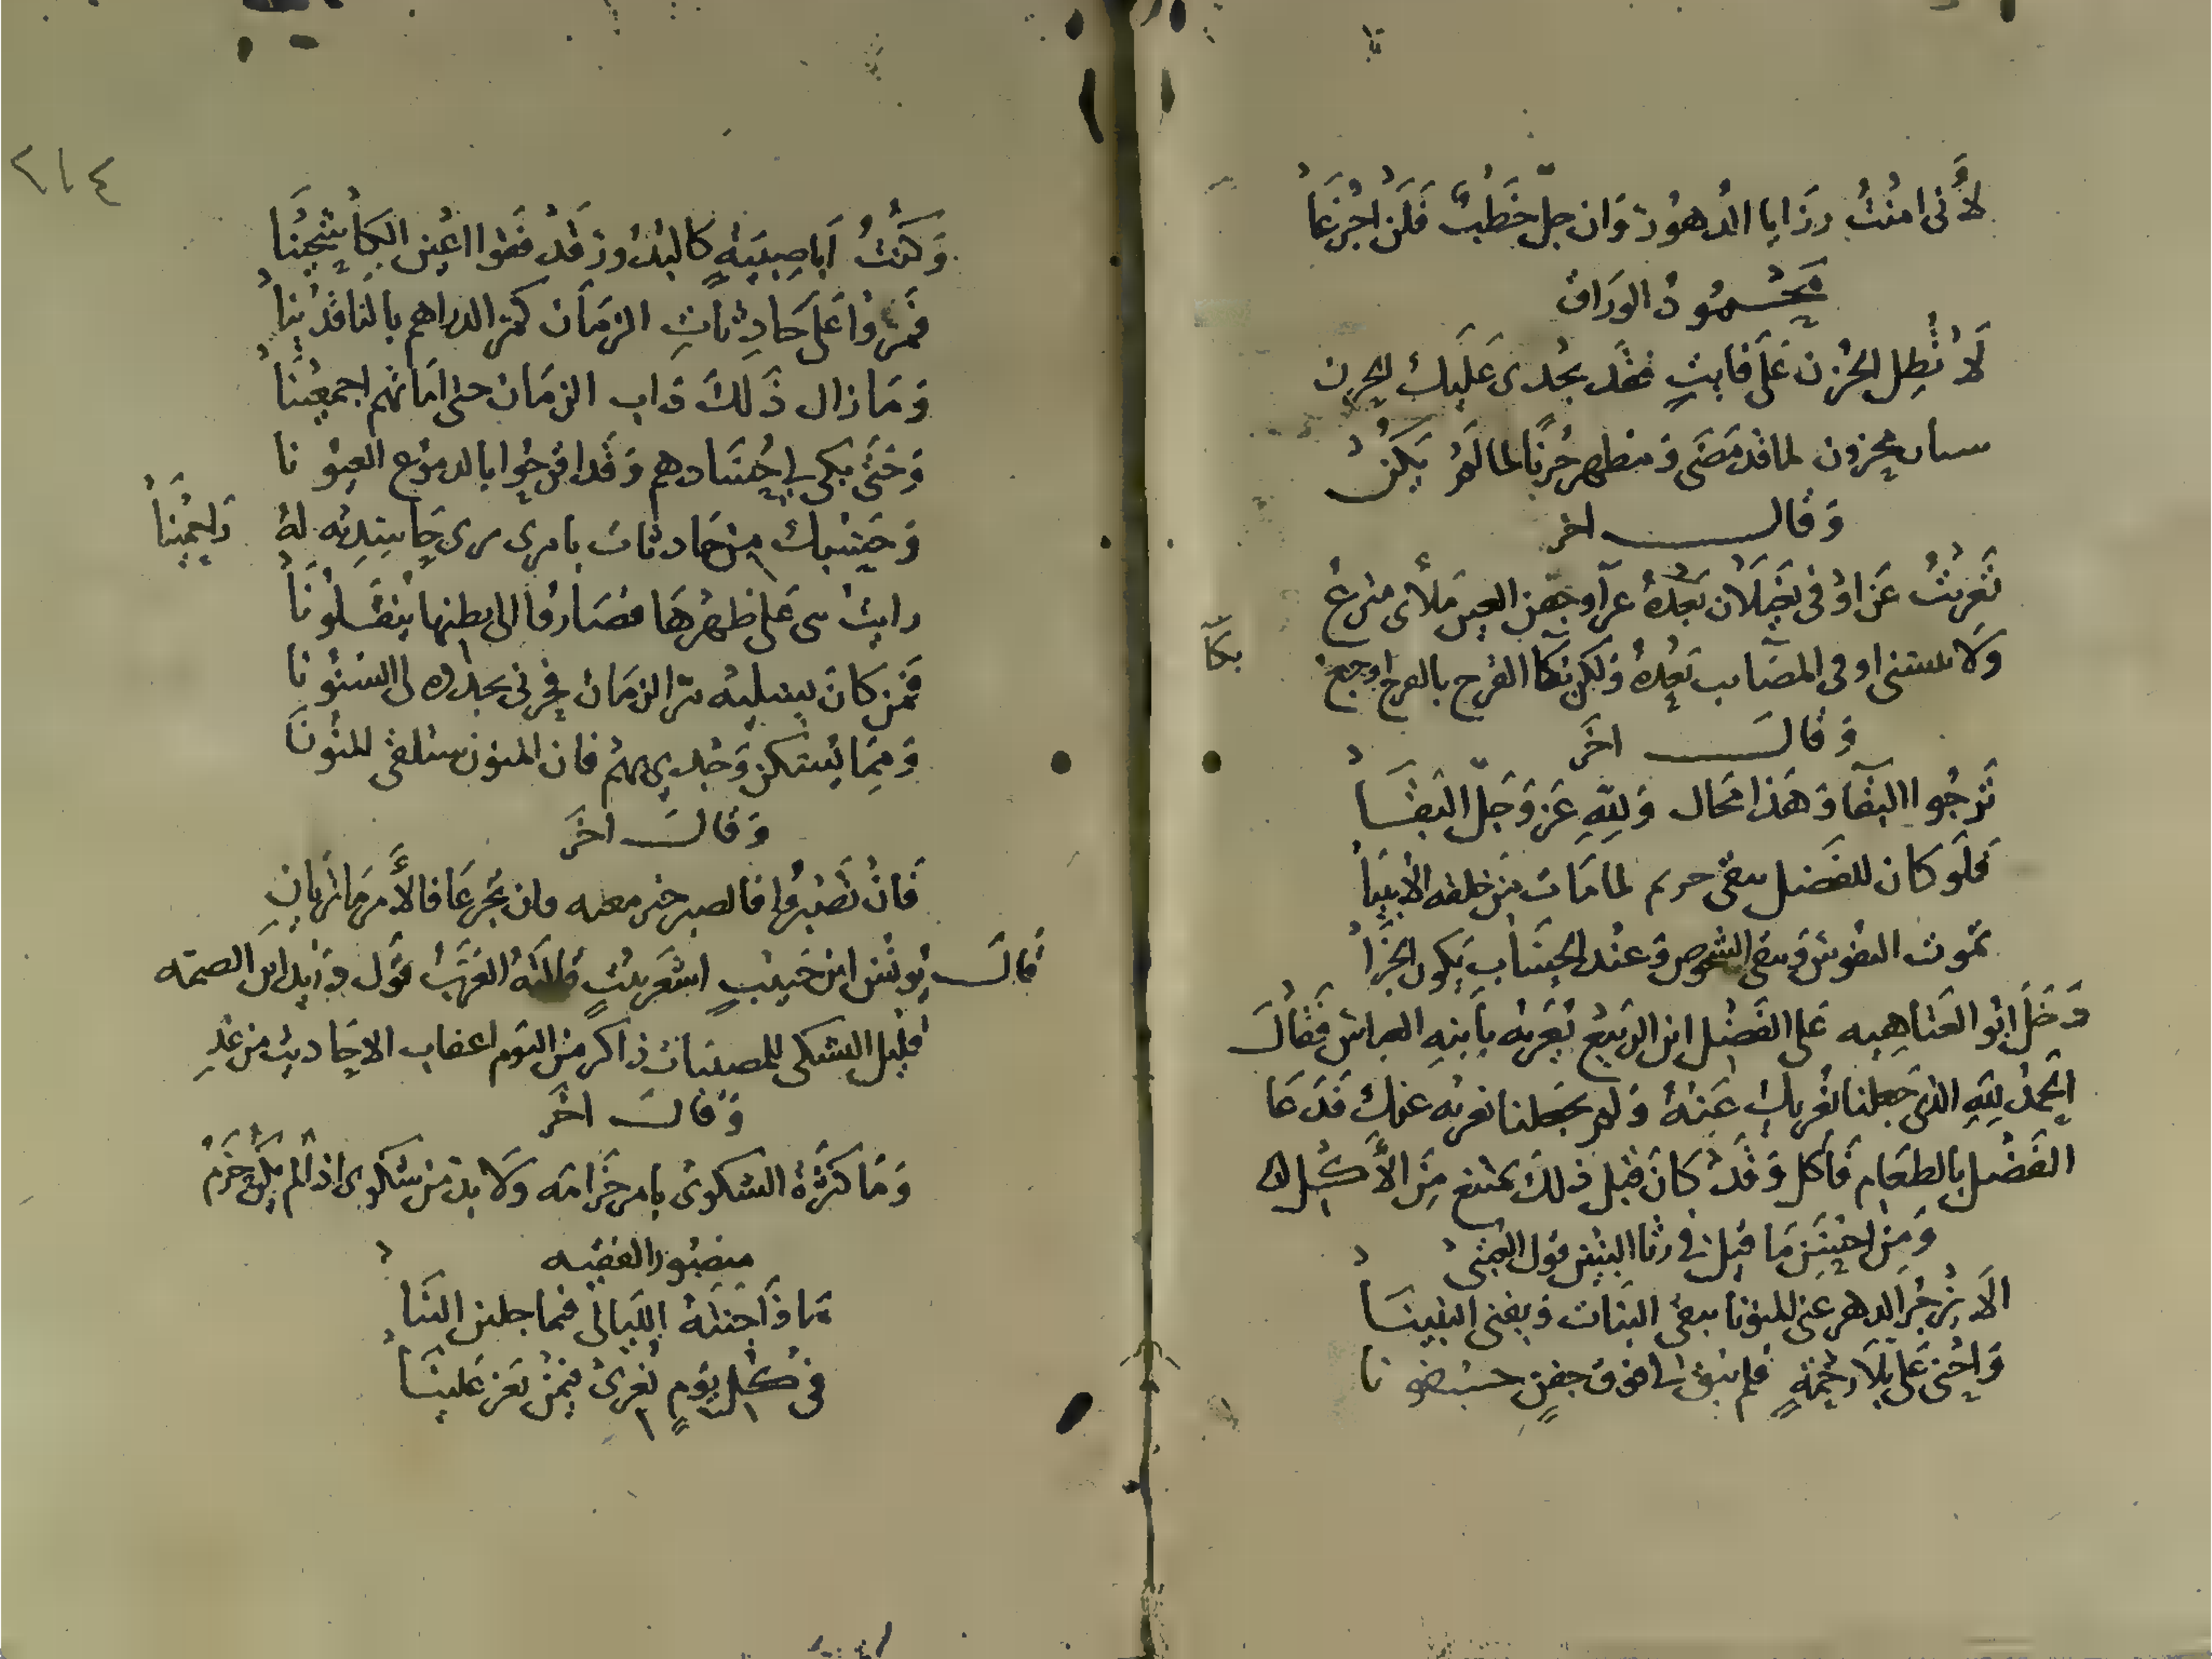 لأني امنت رزايا الدهور وان جل خطب فلن اجزعا
محمود الوراق
لا تطل الحزن على فايت فقد يجدى عليك الحزن
سيان محزون لما قد مضى ومظهر حزنا لما لم يكن
وقال اخر
تعزيت عن اوفى بغيلان بعده عزآ وجفن العين ملأى مترع
ولا اوفى المصآيب بعده ولكن نكا القرح بالقرح اوجع
بكآ
وقال اخر
ترجوا البقآ وهذا محال ولله عز وجل البقا
فلو كان للفضل يبقى كريم لما مات من خلقه الأنبيا
تموت النفوس ويبقى الشخوص وعند الحساب يكون الجزا
دخل ابو العتاهيه على الفضل ابن الربيع يعزيه بابنه العباس فقال
الحمد لله الذي جعلنا نعزيك عنه ولم يجعلنا نعزيه عنك فدعا
الفضل بالطعام فأكل وقد كان قبل ذلك يمتنع من الأكل
ومن احسن ما قيل في رثا البنين قول
الا تزجر الدهر عنى المنونا يبقى البنات ويفنى البنينا
واخنى على بلا رحمة فلم يبق لي فوق جفن جفونا
٢١٤
وكنت ابا صبية كالبدور قد فقوا اعين الكاشحينا
فمروا على حادثات الزمان كمر الدراهم بالناقدينا
وما زال ذلك داب الزمان حتى اماتهم اجمعينا
وحتى بكى لي حسادهم وقد اقرحوا بالدموع العيونا
وحسبك من حادثات بامرى يرى حاسديه له
رحيمينا
رايت بنى على ظهرها فصاروا الى بطنها ينقلونا
فمن كان يسليه مر الزمان فحزنى يجدده لى السنونا
ومما يسكن وجدى بهم فان المنون ستلقى المنونا
وقال اخر
فان تصبروا فالصبر خير مغبه وان تجزعا فالأمر ما تريان
قال يونس ابن حبيب اشعر بيت قالته العرب قول دريد ابن الصمه
قليل التشكى للمصيبات ذاكر من اليوم اعقاب الاحاديث من غد
وقال اخر
وما كثرة الشكوى بامر حزامه ولا بد من شكوى اذا لم يكن حزم
منصور الفقيه
ماذا جنته الليالى فيما جلبن الينا
في كل يوم نعزى فيمن يعز علينا